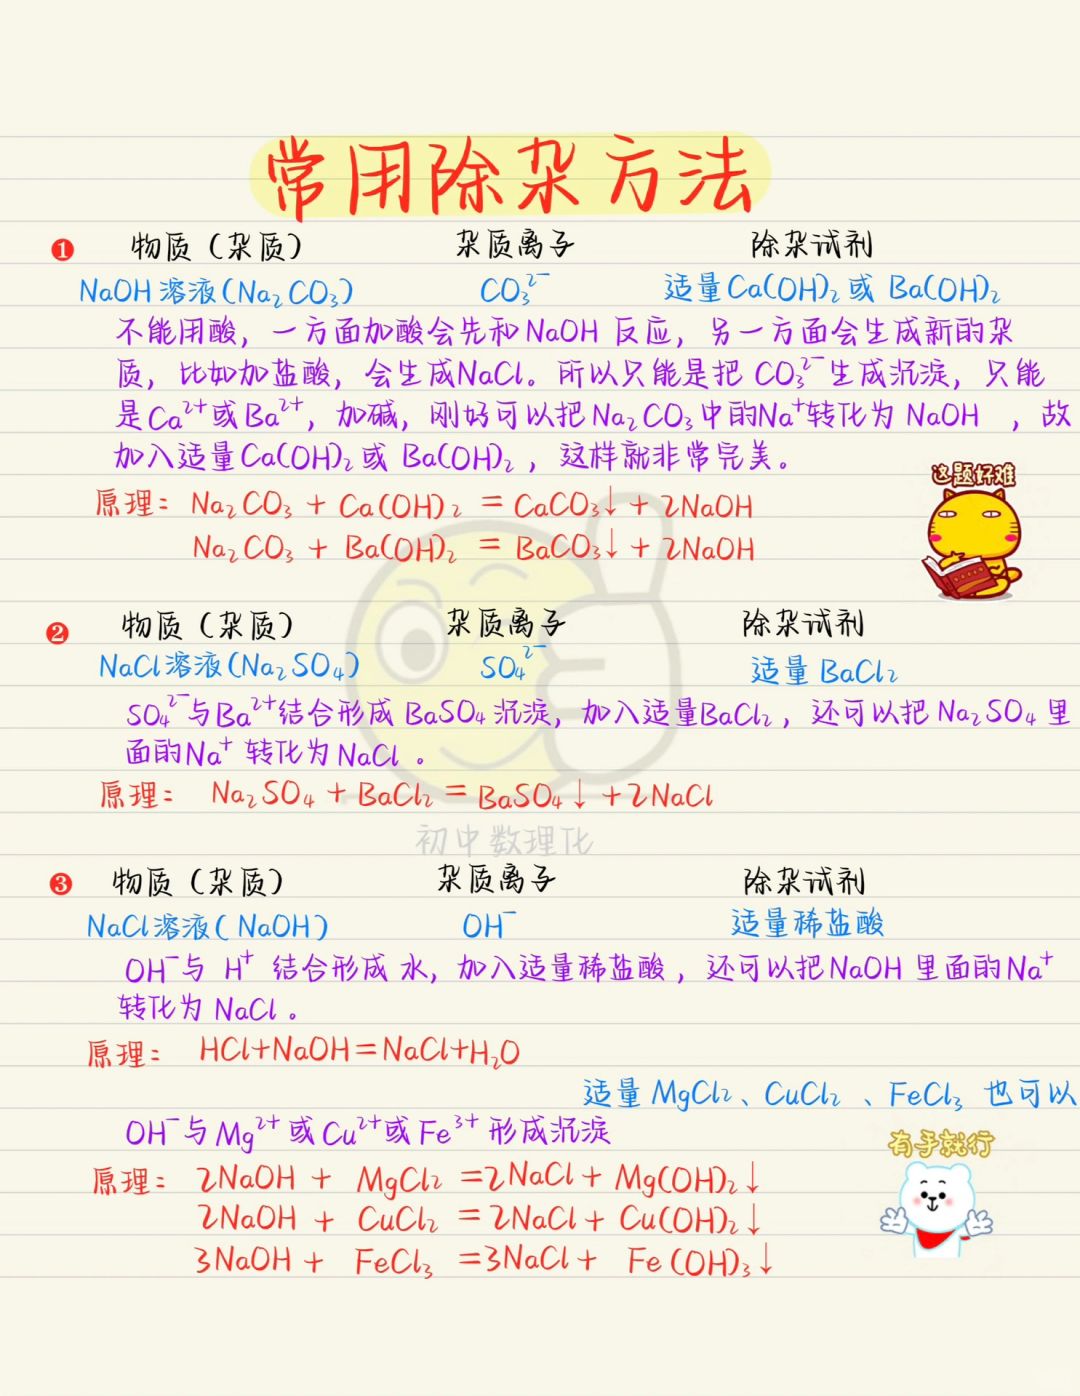 常用除杂方法
❶ 物质（杂质） 杂质离子 除杂试剂
NaOH溶液(Na₂CO₃) CO₃²⁻ 适量Ca(OH)₂或 Ba(OH)₂
不能用酸，一方面加酸会先和NaOH 反应，另一方面会生成新的杂
质，比如加盐酸，会生成NaCl。所以只能是把 CO₃²⁻生成沉淀，只能
是Ca²⁺或Ba²⁺，加碱，刚好可以把Na₂CO₃中的Na⁺转化为 NaOH ，故
加入适量Ca(OH)₂或 Ba(OH)₂，这样就非常完美。
这题好难
原理：Na₂CO₃ + Ca(OH)₂ = CaCO₃↓ + 2NaOH
Na₂CO₃ + Ba(OH)₂ = BaCO₃↓ + 2NaOH
❷ 物质（杂质） 杂质离子 除杂试剂
NaCl溶液(Na₂SO₄) SO₄²⁻ 适量 BaCl₂
SO₄²⁻与Ba²⁺结合形成 BaSO₄沉淀，加入适量BaCl₂，还可以把 Na₂SO₄里
面的Na⁺ 转化为 NaCl 。
原理： Na₂SO₄ + BaCl₂ = BaSO₄↓ +2NaCl
初中数理化
❸ 物质（杂质） 杂质离子 除杂试剂
NaCl溶液( NaOH) OH⁻ 适量稀盐酸
OH⁻与 H⁺ 结合形成 水，加入适量稀盐酸，还可以把NaOH 里面的Na⁺
转化为 NaCl 。
原理： HCl+NaOH=NaCl+H₂O
适量 MgCl₂、CuCl₂ 、FeCl₃ 也可以
OH⁻与Mg²⁺或Cu²⁺或Fe³⁺形成沉淀
有手就行
原理： 2NaOH + MgCl₂ =2NaCl + Mg(OH)₂↓
2NaOH + CuCl₂ =2NaCl + Cu(OH)₂↓
3NaOH + FeCl₃ =3NaCl + Fe(OH)₃↓